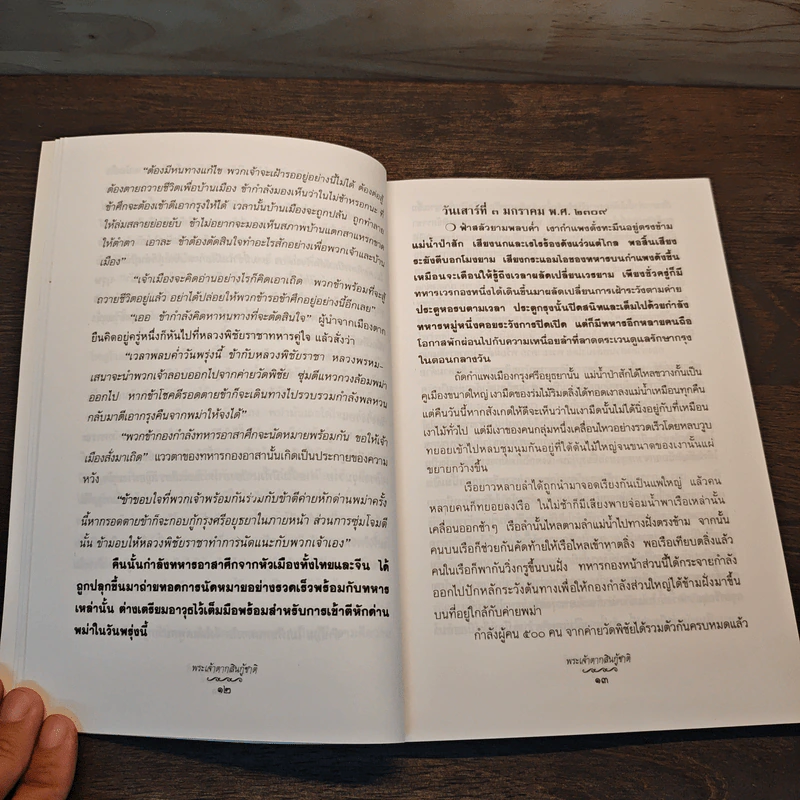 "ต้องมีหนทางแก้ไข พวกเจ้าจะเฝ้ารออยู่อย่างนี้ไม่ได้ ต้องต่อสู้
ต้องตายถวายชีวิตเพื่อบ้านเมือง ข้ากำลังมองเห็นว่าในไม่ช้าหรอกนะ ที่
ข้าศึกจะต้องเข้าตีเอากรุงให้ได้ เวลานั้นบ้านเมืองจะถูกปล้น ถูกทำลาย
ให้ล่มสลายย่อยยับ ข้าไม่อยากจะมองเห็นสภาพบ้านแตกสาแหรกขาด
ให้ตำตา เอาละ ข้าต้องตัดสินใจทำอะไรสักอย่างเพื่อพวกเจ้าและบ้าน
เมือง"
"เจ้าเมืองจะคิดอ่านอย่างไรก็คิดเอาเถิด พวกข้าพร้อมที่จะสู้
ถวายชีวิตอยู่แล้ว อย่าได้ปล่อยให้พวกข้ารอข้าศึกอยู่อย่างนี้อีกเลย"
"เออ ข้ากำลังคิดหาหนทางที่จะตัดสินใจ" ผู้นำจากเมืองตาก
ยืนคิดอยู่ครู่หนึ่งก็หันไปที่หลวงพิชัยราชาทหารคู่ใจ แล้วสั่งว่า
"เวลาพลบค่ำวันพรุ่งนี้ ข้ากับหลวงพิชัยราชา หลวงพรหม-
เสนาจะนำพวกเจ้าลอบออกไปจากค่ายวัดพิชัย ซุ่มตีแหกวงล้อมพม่า
ออกไป หากข้าโชคดีรอดตายข้าก็จะเดินทางไปรวบรวมกำลังพลหวน
กลับมาตีเอากรุงคืนจากพม่าให้จงได้"
"พวกข้ากองกำลังทหารอาสาศึกจะนัดหมายพร้อมกัน ขอให้เจ้า
เมืองสั่งมาเถิด" แววตาของทหารกองอาสานั้นเกิดเป็นประกายของความ
หวัง
"ข้าขอบใจที่พวกเจ้าพร้อมกันร่วมกับข้าตีค่ายหักด่านพม่าครั้ง
นี้หากรอดตายข้าก็จะกอบกู้กรุงศรีอยุธยาในภายหน้า ส่วนการซุ่มโจมตี
นั้น ข้ามอบให้หลวงพิชัยราชาทำการนัดแนะกับพวกเจ้าเอง"
คืนนั้นกำลังทหารอาสาศึกจากหัวเมืองทั้งไทยและจีน ได้
ถูกปลุกขึ้นมาถ่ายทอดการนัดหมายอย่างรวดเร็วพร้อมกับทหาร
เหล่านั้น ต่างเตรียมอาวุธไว้เต็มมือพร้อมสำหรับการเข้าตีหักด่าน
พม่าในวันพรุ่งนี้
พระเจ้าตากสินกู้ชาติ
๑๒
วันเสาร์ที่ ๓ มกราคม พ.ศ. ๒๓๐๙
ฟ้าสลัวยามพลบค่ำ เงากำแพงตั้งทะมึนอยู่ตรงข้าม
แม่น้ำป่าสัก เสียงนกและเรไรร้องดังแว่วแต่ไกล พอสิ้นเสียง
ระฆังตีบอกโมงยาม เสียงกระแอมไอของทหารบนกำแพงดังขึ้น
เหมือนจะเตือนให้รู้ถึงเวลาผลัดเปลี่ยนเวรยาม เพียงชั่วครู่ก็มี
ทหารเวรกองหนึ่งได้เดินขึ้นมาผลัดเปลี่ยนการเฝ้าระวังตามค่าย
ประตูหอรบตามเวลา ประตูกรุงนั้นปิดสนิทและเต็มไปด้วยกำลัง
ทหารหมู่หนึ่งคอยระวังการปิดเปิด แต่ก็มีทหารอีกหลายคนถือ
โอกาสพักผ่อนไปกับความเหนื่อยล้าที่ลาดตระเวนดูแลรักษากรุง
ในตอนกลางวัน
ถัดกำแพงเมืองกรุงศรีอยุธยานั้น แม่น้ำป่าสักได้ไหลขวางกั้นเป็น
คูเมืองขนาดใหญ่ เงามืดของร่มไม้ริมตลิ่งได้ทอดเงาลงแม่น้ำเหมือนทุกคืน
แต่คืนวันนี้หากสังเกตให้ดีจะเห็นว่าในเงามืดนั้นไม่ได้นิ่งอยู่กับที่เหมือน
เงาไม้ทั่วไป แต่มีเงาของคนกลุ่มหนึ่งเคลื่อนไหวอย่างรวดเร็วโดยหลบวูบ
ทยอยเข้าไปหลบชุมนุมกันอยู่ที่ใต้ต้นไม้ใหญ่จนขนาดของเงานั้นแผ่
ขยายกว้างขึ้น
เรือยาวหลายลำได้ถูกนำมาจอดเรียงกันเป็นแพใหญ่ แล้วคน
หลายคนก็ทยอยลงเรือ ในไม่ช้าก็มีเสียงพายจ่อมน้ำพาเรือเหล่านั้น
เคลื่อนออกช้าๆ เรือลำนั้นไหลตามลำแม่น้ำไปทางฝั่งตรงข้าม จากนั้น
คนบนเรือก็ช่วยกันคัดท้ายให้เรือไหลเข้าหาตลิ่ง พอเรือเทียบตลิ่งแล้ว
คนในเรือก็พากันวิ่งกรูขึ้นบนฝั่ง ทหารกองหน้าส่วนนี้ได้กระจายกำลัง
ออกไปปักหลักระวังต้นทางเพื่อให้กองกำลังส่วนใหญ่ได้ข้ามฝั่งมาขึ้น
บนที่อยู่ใกล้กับค่ายพม่า
กำลังผู้คน ๕๐๐ คน จากค่ายวัดพิชัยได้รวมตัวกันครบหมดแล้ว
พระเจ้าตากสินกู้ชาติ
๑๓